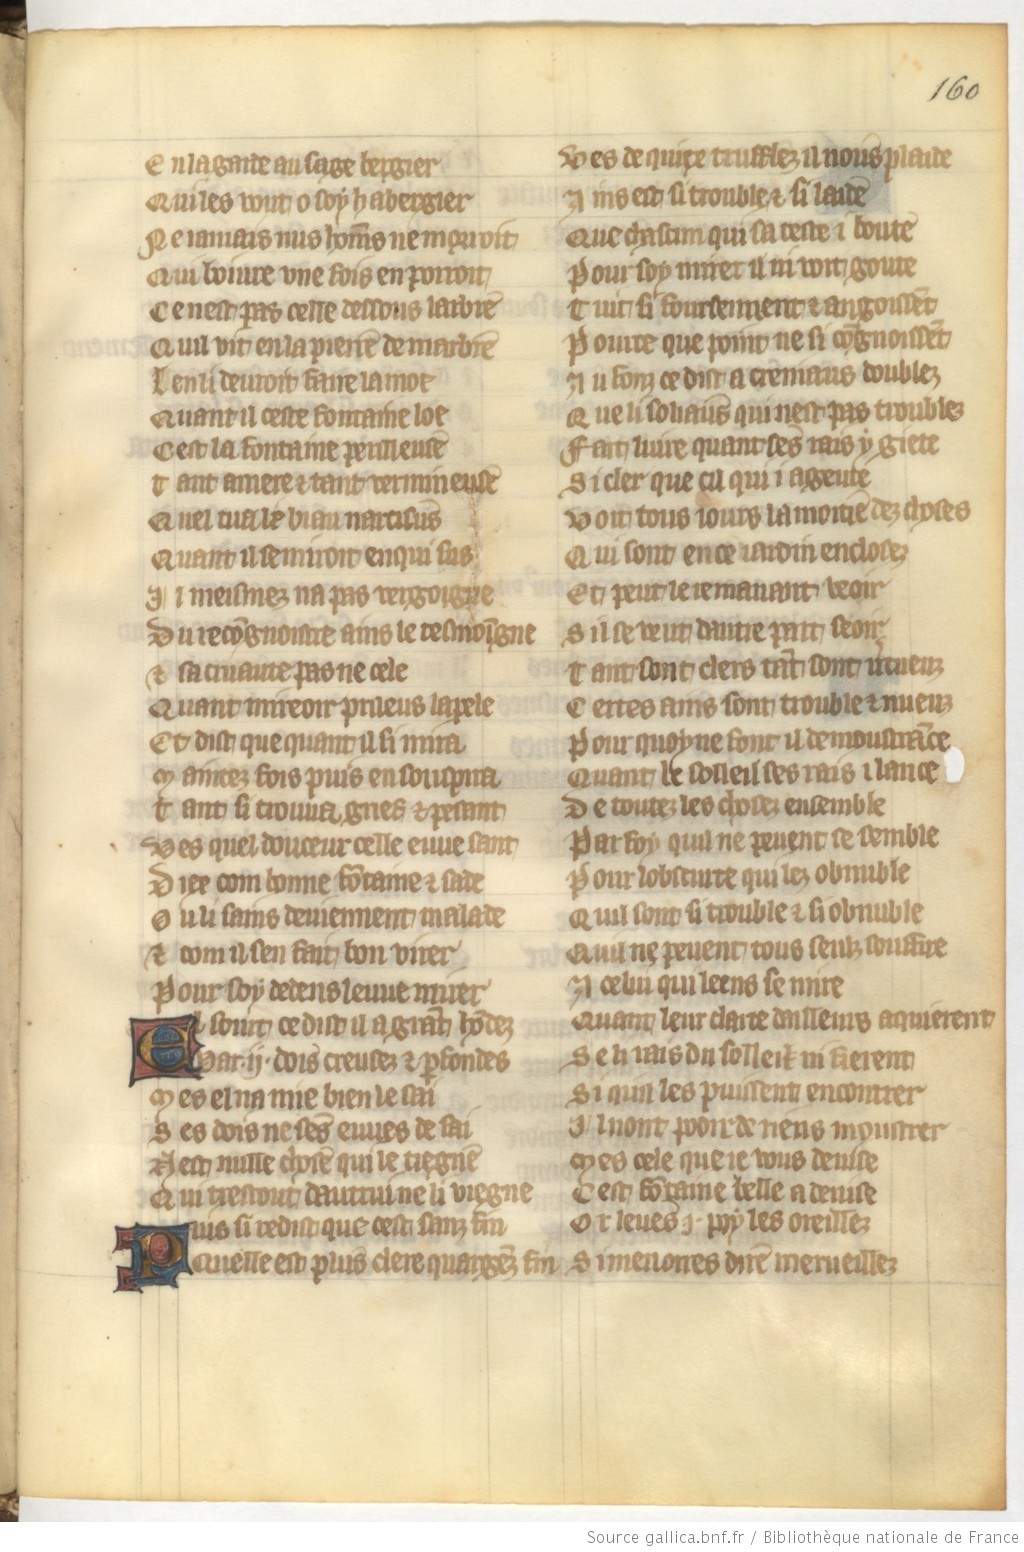 160
En la garde au sage bergier
Qui les vout o soy habergier
Ne iamais nus homs ne mourroit
Qui boiure vne fois en porroit
Ce nest pas celle dessous larbre
Quil vit en la pierre de marbre
Len li deuroit faire la moe
Quant il ceste fontaine loe
Cest la fontaine perilleuse
Tant amere & tant venimeuse
Quel tua le biau narcisus
Quant il se miroit enqui sus
Il meismez na pas vergoigne
Du recongnoistre ains le tesmoigne
& sa cruaute pas ne cele
Quant mireoir prilleus lapele
Et dist que quant il si mira
Maintez fois puis en souspira
Tant si trouua gries & pesant
Ves quel douceur celle euue sant
Diex com bonne fontaine & sade
Ou li sains deuiennent malade
& com il sen fait bon virer
Pour soy dedens leuue mirer
El sourt ce dist il a grant hondez
Par .ij. dois creusez & parfondes
Mes el na mie bien le sai
Ses dois ne ses euues de sai
Nest nulle chose qui le tiegne
Qui trestout dautrui ne li viegne
Puis si redist que cest sanz fin
Quelle est plus clere quargent fin
Ves de quiex trufflez il nous plaide
Ains est si trouble & si laide
Que chascun qui sa teste i boute
Pour soy mirer il ni voit goute
Tuit si foursennent & angoissent
Pource que point ne si congnoissent
Au fonz ce dist a cretiaus doublez
Que li soliaus qui nest pas troublez
Fait luire quant ses rais y giete
Si cler que cil qui i aguete
Voit tous iours la moitie dez choses
Qui sont en ce iardin enclosez
Et peut le remanant veoir
Sil se veut dautre part seoir
Tant sont clers tant sont vertueuz
Certes ains sont trouble & nueuz
Pour quoy ne font il demoustrance
Quant le solleil ses rais i lance
De toutez les chosez ensemble
Par foy quil ne peuent ce semble
Pour lobscurte qui lez obnuble
Quil sont si trouble & si obnuble
Quil ne peuent tous seulz souffire
A celui qui leens se mire
Quant leur clarte dailleurs aquierent
Se li rais du solleil ni fierent
Si quil les puissent encontrer
Il nont pooir de riens moustrer
Mes cele que ie vous deuise
Cest fontaine belle a deuise
Or leues .i. poy les oreillez
Si men orres dire merueillez
Source gallica.bnf.fr / Bibliothèque nationale de France